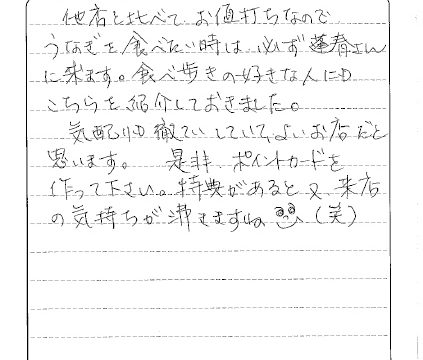 他店と比べて お値打ちなので
うなぎを食べたい時は 必ず 蓬春さん
に来ます。食べ歩きの好きな人にも
こちらを紹介しておきました。
気配りも徹ていしていて、よいお店だと
思います。 是非 ポイントカードを
作って下さい。特典があると 又 来店
の気持ちが 沸きますね (笑)